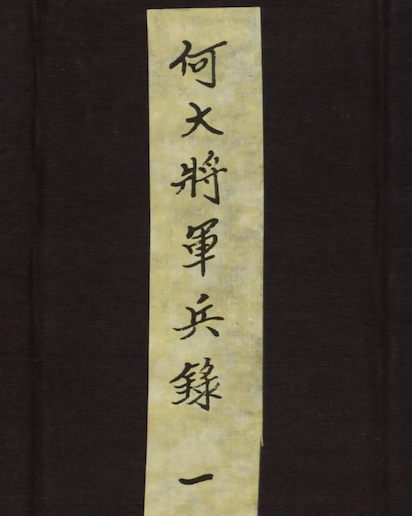 何大將軍兵錄 一